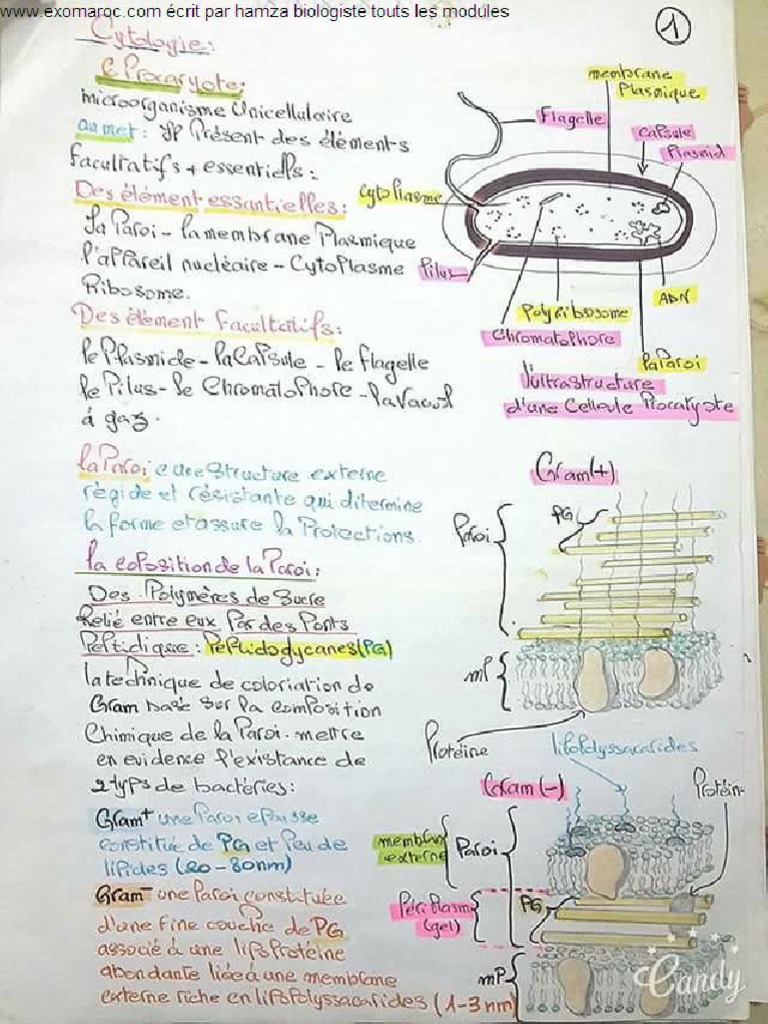 www.exomaroc.com écrit par hamza biologiste touts les modules
1
Cytologie:
Procaryote:
microorganisme Unicellulaire
au met: Il Présent des éléments
facultatifs + essentiells:
Des élément essantielles:
la Paroi - la membrane Plasmique
l'appareil nucléaire - Cytoplasme
Ribosome.
Des élément facultatifs:
le Plasmide - la Capsule - le flagelle
le Pilus - le Chromatophore - la Vacuol
à gaz.
membrane
Plasmique
Flagelle
capsule
Plasmid
Cytoplasme
Pilus
Polyribosome
ADN
Chromatophore
la Paroi
l'ultrastructure
d'une Cellule Procaryote
la Paroi e une Structure externe
régide et résistante qui ditermine
la forme et assure la Protections.
la coposition de la Paroi:
Des Polymères de Sucre
Relié entre eux Par des Ponts
Peptidique: Peptidoglycanes (PG)
la technique de coloriation de
Gram basé sur la composition
Chimique de la Paroi. mettre
en evidence l'existance de
2 typs de bactéries:
Gram+ une Paroi epaisse
constituée de PG et Peu de
lipides (20-80nm)
Gram- une Paroi constituée
d'une fine couche de PG
associé à une lipoprotéine
abondante liée à une membrane
externe riche en lipopolyssacarides (1-3 nm)
Gram(+)
Paroi
PG
mP
Protéine
lipopolyssacarides
Gram(-)
Protéin
membran
externe
Paroi
Périplasm
(gel)
PG
mP
Candy